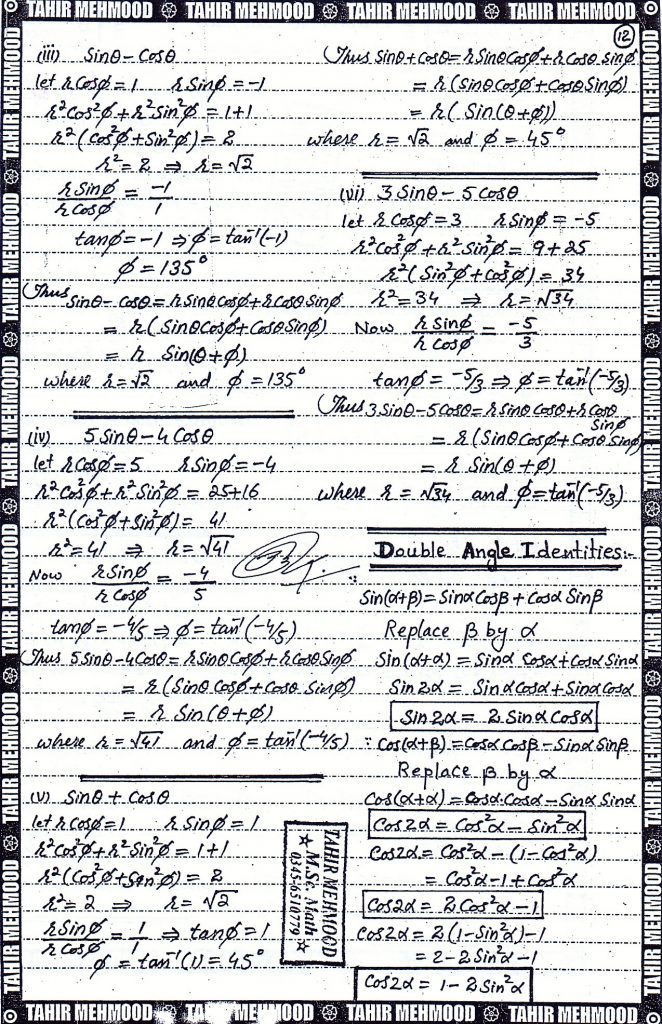 TAHIR MEHMOOD TAHIR MEHMOOD TAHIR MEHMOOD TAHIR MEHMOOD
12
(iii) Sinθ - Cosθ
let r Cosφ = 1 r Sinφ = -1
r²Cos²φ + r²Sin²φ = 1+1
r²(Cos²φ + Sin²φ) = 2
r² = 2 ⇒ r = √2
r Sinφ / r Cosφ = -1/1
tanφ = -1 ⇒ φ = tan⁻¹(-1)
φ = 135°
Thus Sinθ - Cosθ = r Sinθ Cosφ + r Cosθ Sinφ
= r (Sinθ Cosφ + Cosθ Sinφ)
= r Sin(θ + φ)
where r = √2 and φ = 135°
(iv) 5 Sinθ - 4 Cosθ
let r Cosφ = 5 r Sinφ = -4
r²Cos²φ + r²Sin²φ = 25+16
r²(Cos²φ + Sin²φ) = 41
r² = 41 ⇒ r = √41
Now r Sinφ / r Cosφ = -4/5
tanφ = -4/5 ⇒ φ = tan⁻¹(-4/5)
Thus 5 Sinθ - 4 Cosθ = r Sinθ Cosφ + r Cosθ Sinφ
= r (Sinθ Cosφ + Cosθ Sinφ)
= r Sin(θ + φ)
where r = √41 and φ = tan⁻¹(-4/5)
(v) Sinθ + Cosθ
let r Cosφ = 1 r Sinφ = 1
r²Cos²φ + r²Sin²φ = 1+1
r²(Cos²φ + Sin²φ) = 2
r² = 2 ⇒ r = √2
r Sinφ / r Cosφ = 1/1 ⇒ tanφ = 1
φ = tan⁻¹(1) = 45°
TAHIR MEHMOOD
M.Sc. Math
0345-6510779
Thus Sinθ + Cosθ = r Sinθ Cosφ + r Cosθ Sinφ
= r (Sinθ Cosφ + Cosθ Sinφ)
= r ( Sin(θ + φ))
where r = √2 and φ = 45°
(vi) 3 Sinθ - 5 Cosθ
let r Cosφ = 3 r Sinφ = -5
r²Cos²φ + r²Sin²φ = 9+25
r²(Sin²φ + Cos²φ) = 34
r² = 34 ⇒ r = √34
Now r Sinφ / r Cosφ = -5/3
tanφ = -5/3 ⇒ φ = tan⁻¹(-5/3)
Thus 3 Sinθ - 5 Cosθ = r Sinθ Cosθ + r Cosθ Sinφ
= r (Sinθ Cosφ + Cosθ Sinφ)
= r Sin(θ + φ)
where r = √34 and φ = tan⁻¹(-5/3)
Double Angle Identities:-
∵ Sin(α+β) = Sinα Cosβ + Cosα Sinβ
Replace β by α
Sin(α+α) = Sinα Cosα + Cosα Sinα
Sin 2α = Sinα Cosα + Sinα Cosα
Sin 2α = 2 Sinα Cosα
∵ Cos(α+β) = Cosα Cosβ - Sinα Sinβ
Replace β by α
Cos(α+α) = Cosα.Cosα - Sinα Sinα
Cos2α = Cos²α - Sin²α
Cos2α = Cos²α - (1 - Cos²α)
= Cos²α - 1 + Cos²α
Cos2α = 2 Cos²α - 1
Cos2α = 2(1 - Sin²α) - 1
= 2 - 2 Sin²α - 1
Cos2α = 1 - 2 Sin²α
TAHIR MEHMOOD TAHIR MEHMOOD TAHIR MEHMOOD TAHIR MEHMOOD